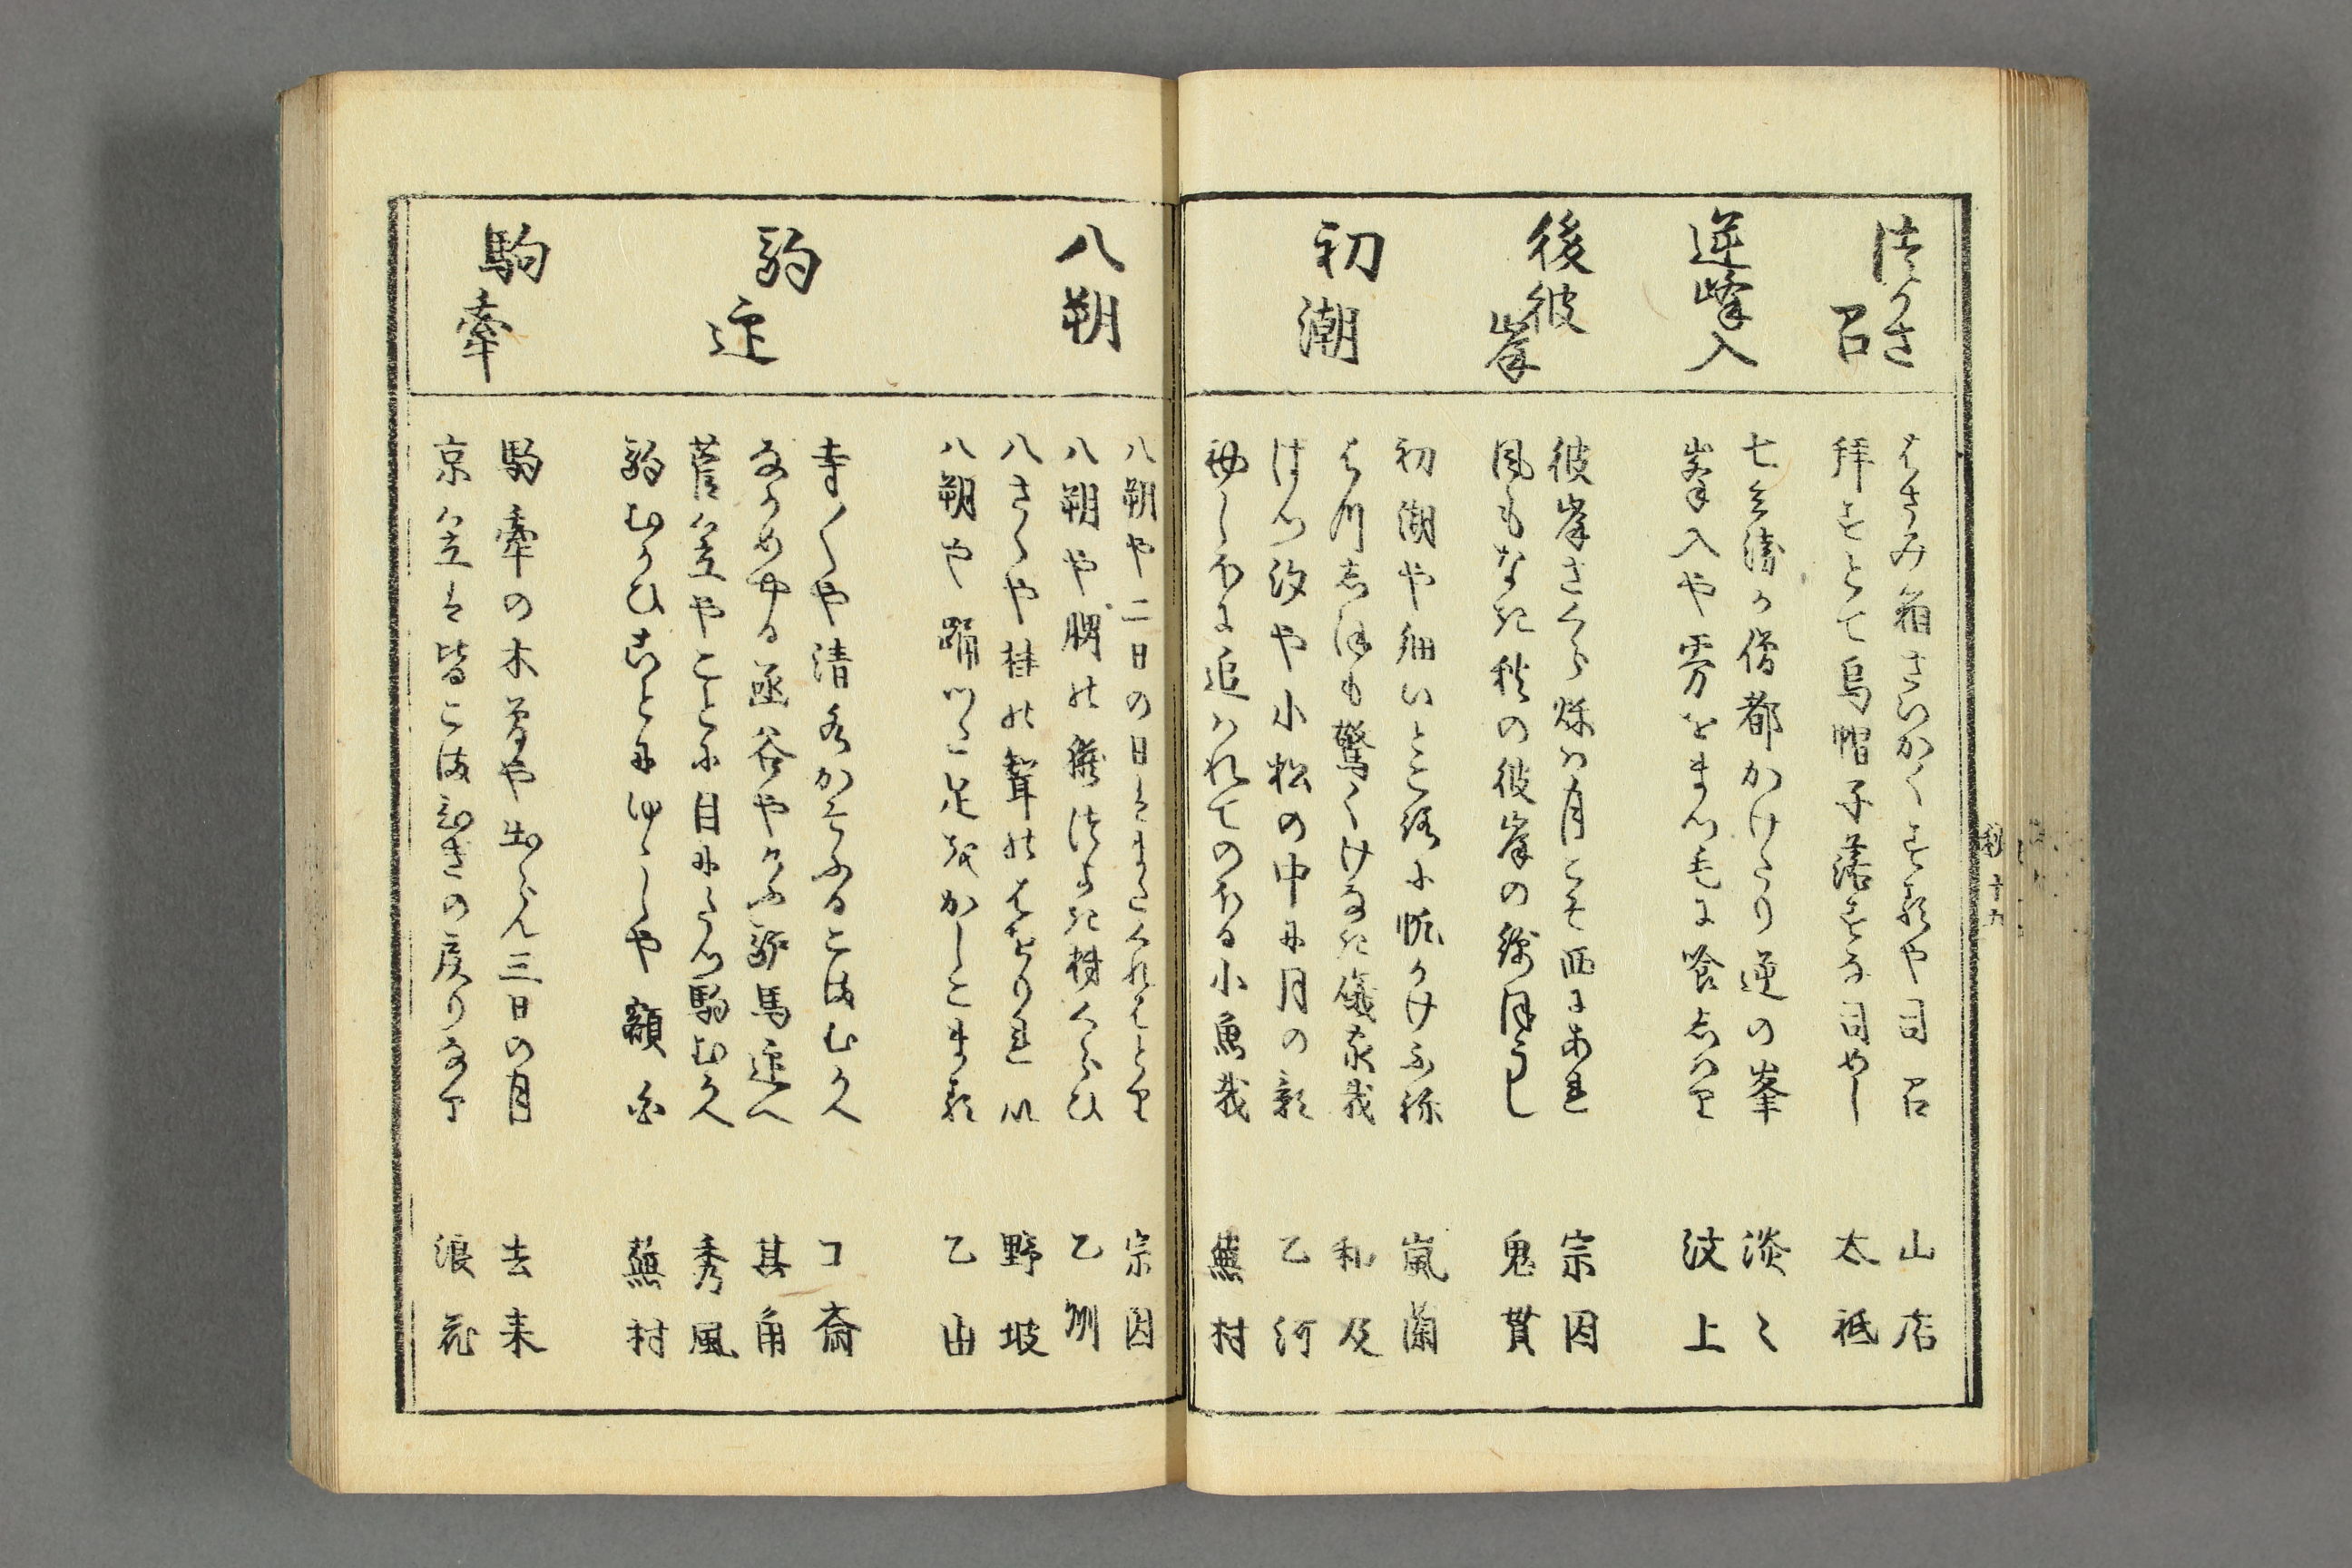 つかさ
召
はさみ箱さいかくすなや司召 山店
拝すとて烏帽子落すな司めし 太祇
逆峰入
七兵衛か僧都かけたり逆の峯 淡〻
峯入や雰をまつ毛に喰しはり 汶上
後彼
岸
彼岸さくら咲は月こそ西にあれ 宗因
風もなき秋の彼岸の綿ほうし 鬼貫
初潮
初潮や細いところに帆かけふね 嵐蘭
はつしほも驚くけなき哉 和及
はつ汐や小松の中に月の影 乙河
初しほに追はれてのほる小魚哉 蕪村
八朔
八朔や二日の日はまたくれはとり 宗因
八朔や膳のつよき村くらひ 乙州
八さくや桂の聟のはをりとし 野坡
八朔や踊つた足をかしこまる 乙由
駒
迎
寺〱や清水かそふるこまむかへ コ斎
なかめやる函谷やけふ駒馬迎へ 其角
菅笠やことに目にたつ駒むかへ 秀風
駒むかひことにゆゝしや額白 蕪村
駒
牽
駒牽の木曽や出らん三日の月 去来
京笠は皆こまひきの戻りなり 浪花
秋 十九